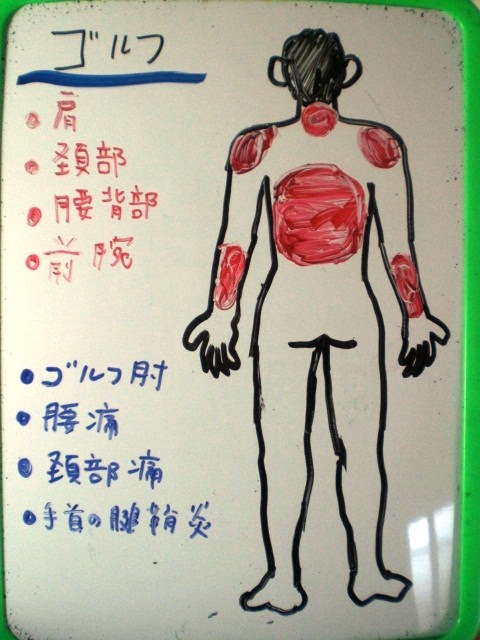 ゴルフ
● 肩
● 頚部
● 腰背部
● 前腕
● ゴルフ肘
● 腰痛
● 頚部痛
● 手首の腱鞘炎